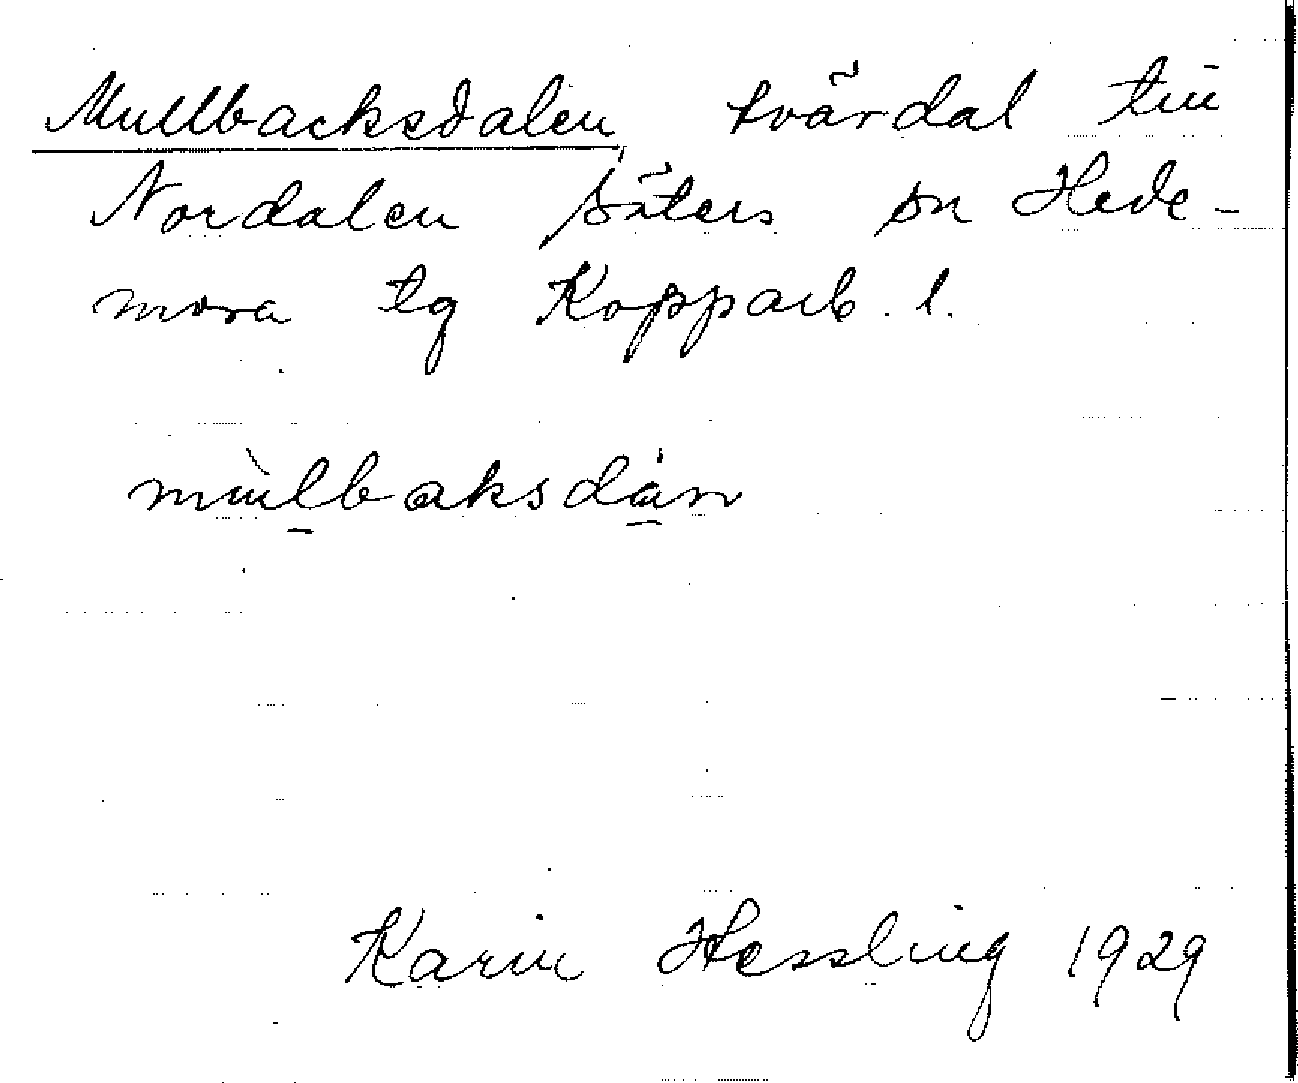 Mullbacksdalen tvärdal till
Nordalen Säters sn Hede-
mora tg Kopparb. l.
mùlbaksdán
Karin Hessling 1929